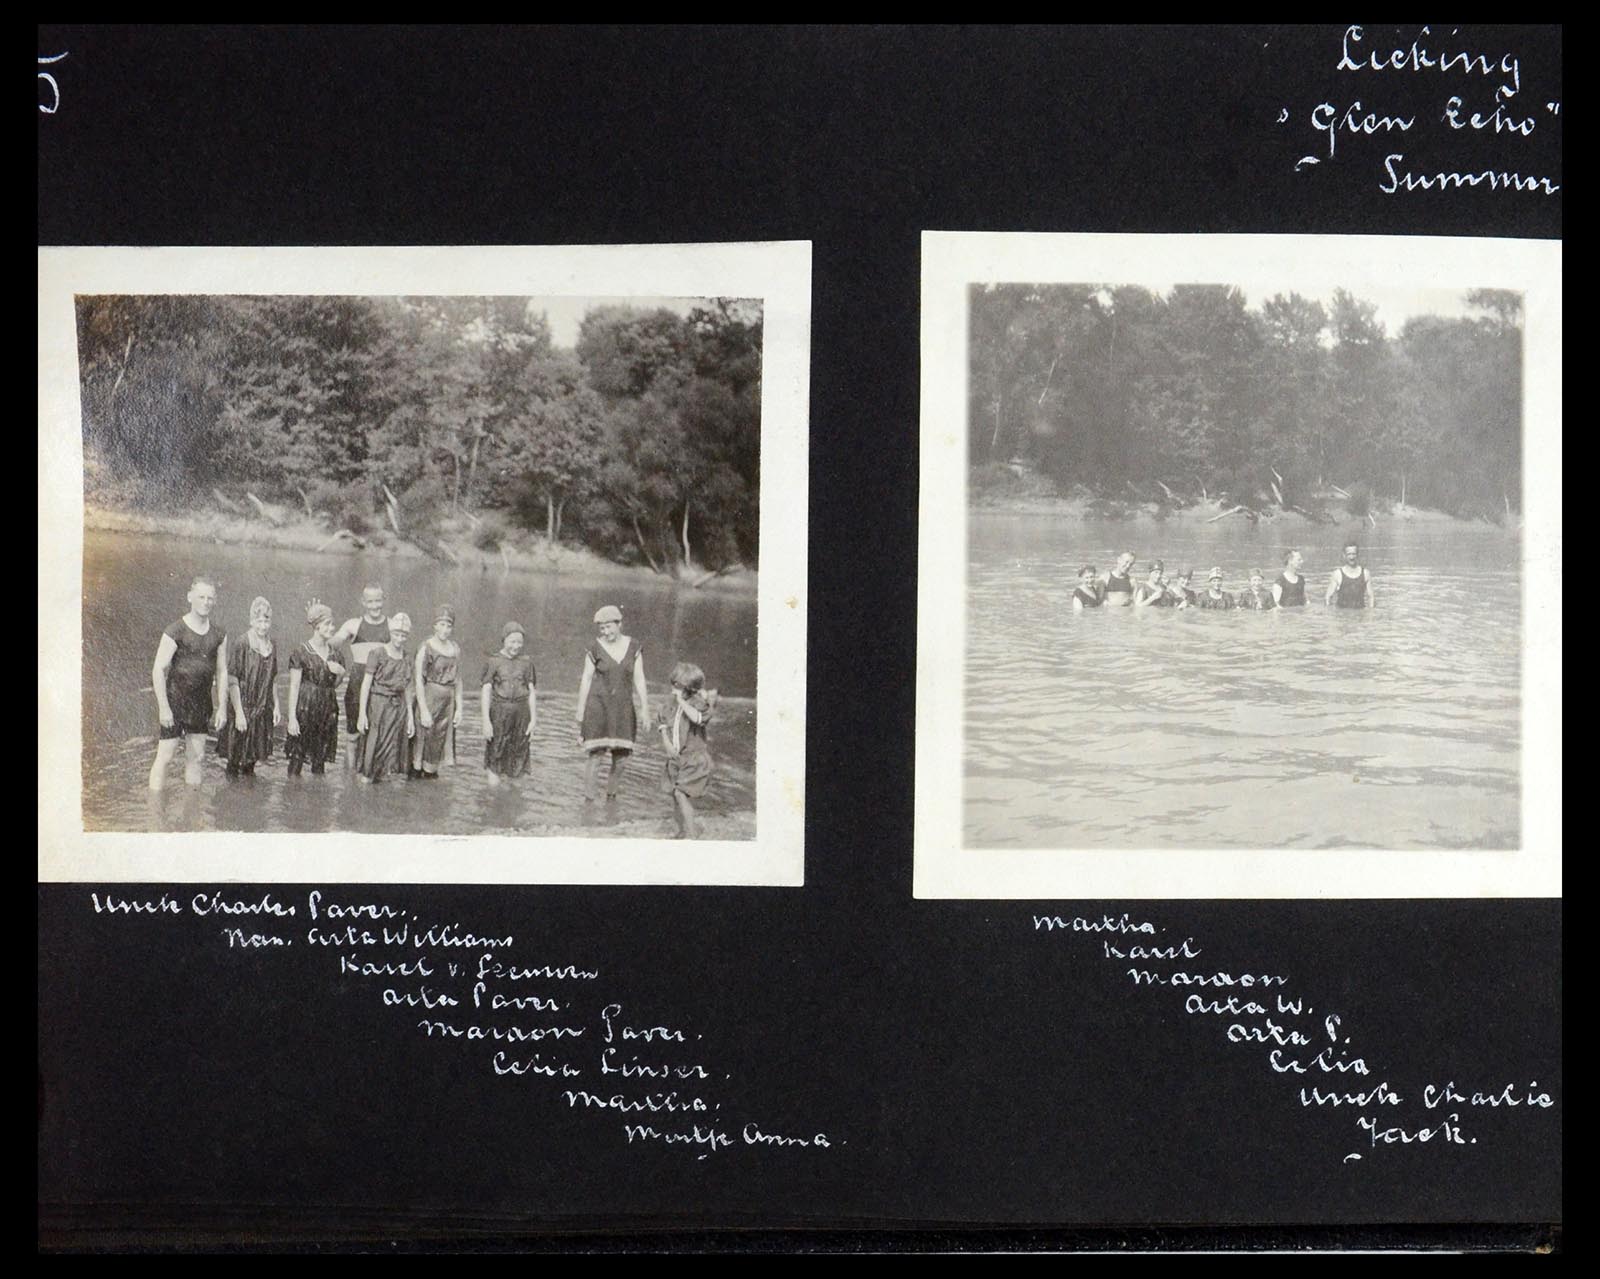 Licking
"Glen Echo"
Summer
Uncle Charles Paver.
Nan. Arta Williams
Karel v. Leeuwen
Arta Paver.
Marion Paver.
Celia Linser.
Martha.
Anna.
Martha.
Karel
Marion
Arta W.
Arta P.
Celia
Uncle Charlie
Jack.